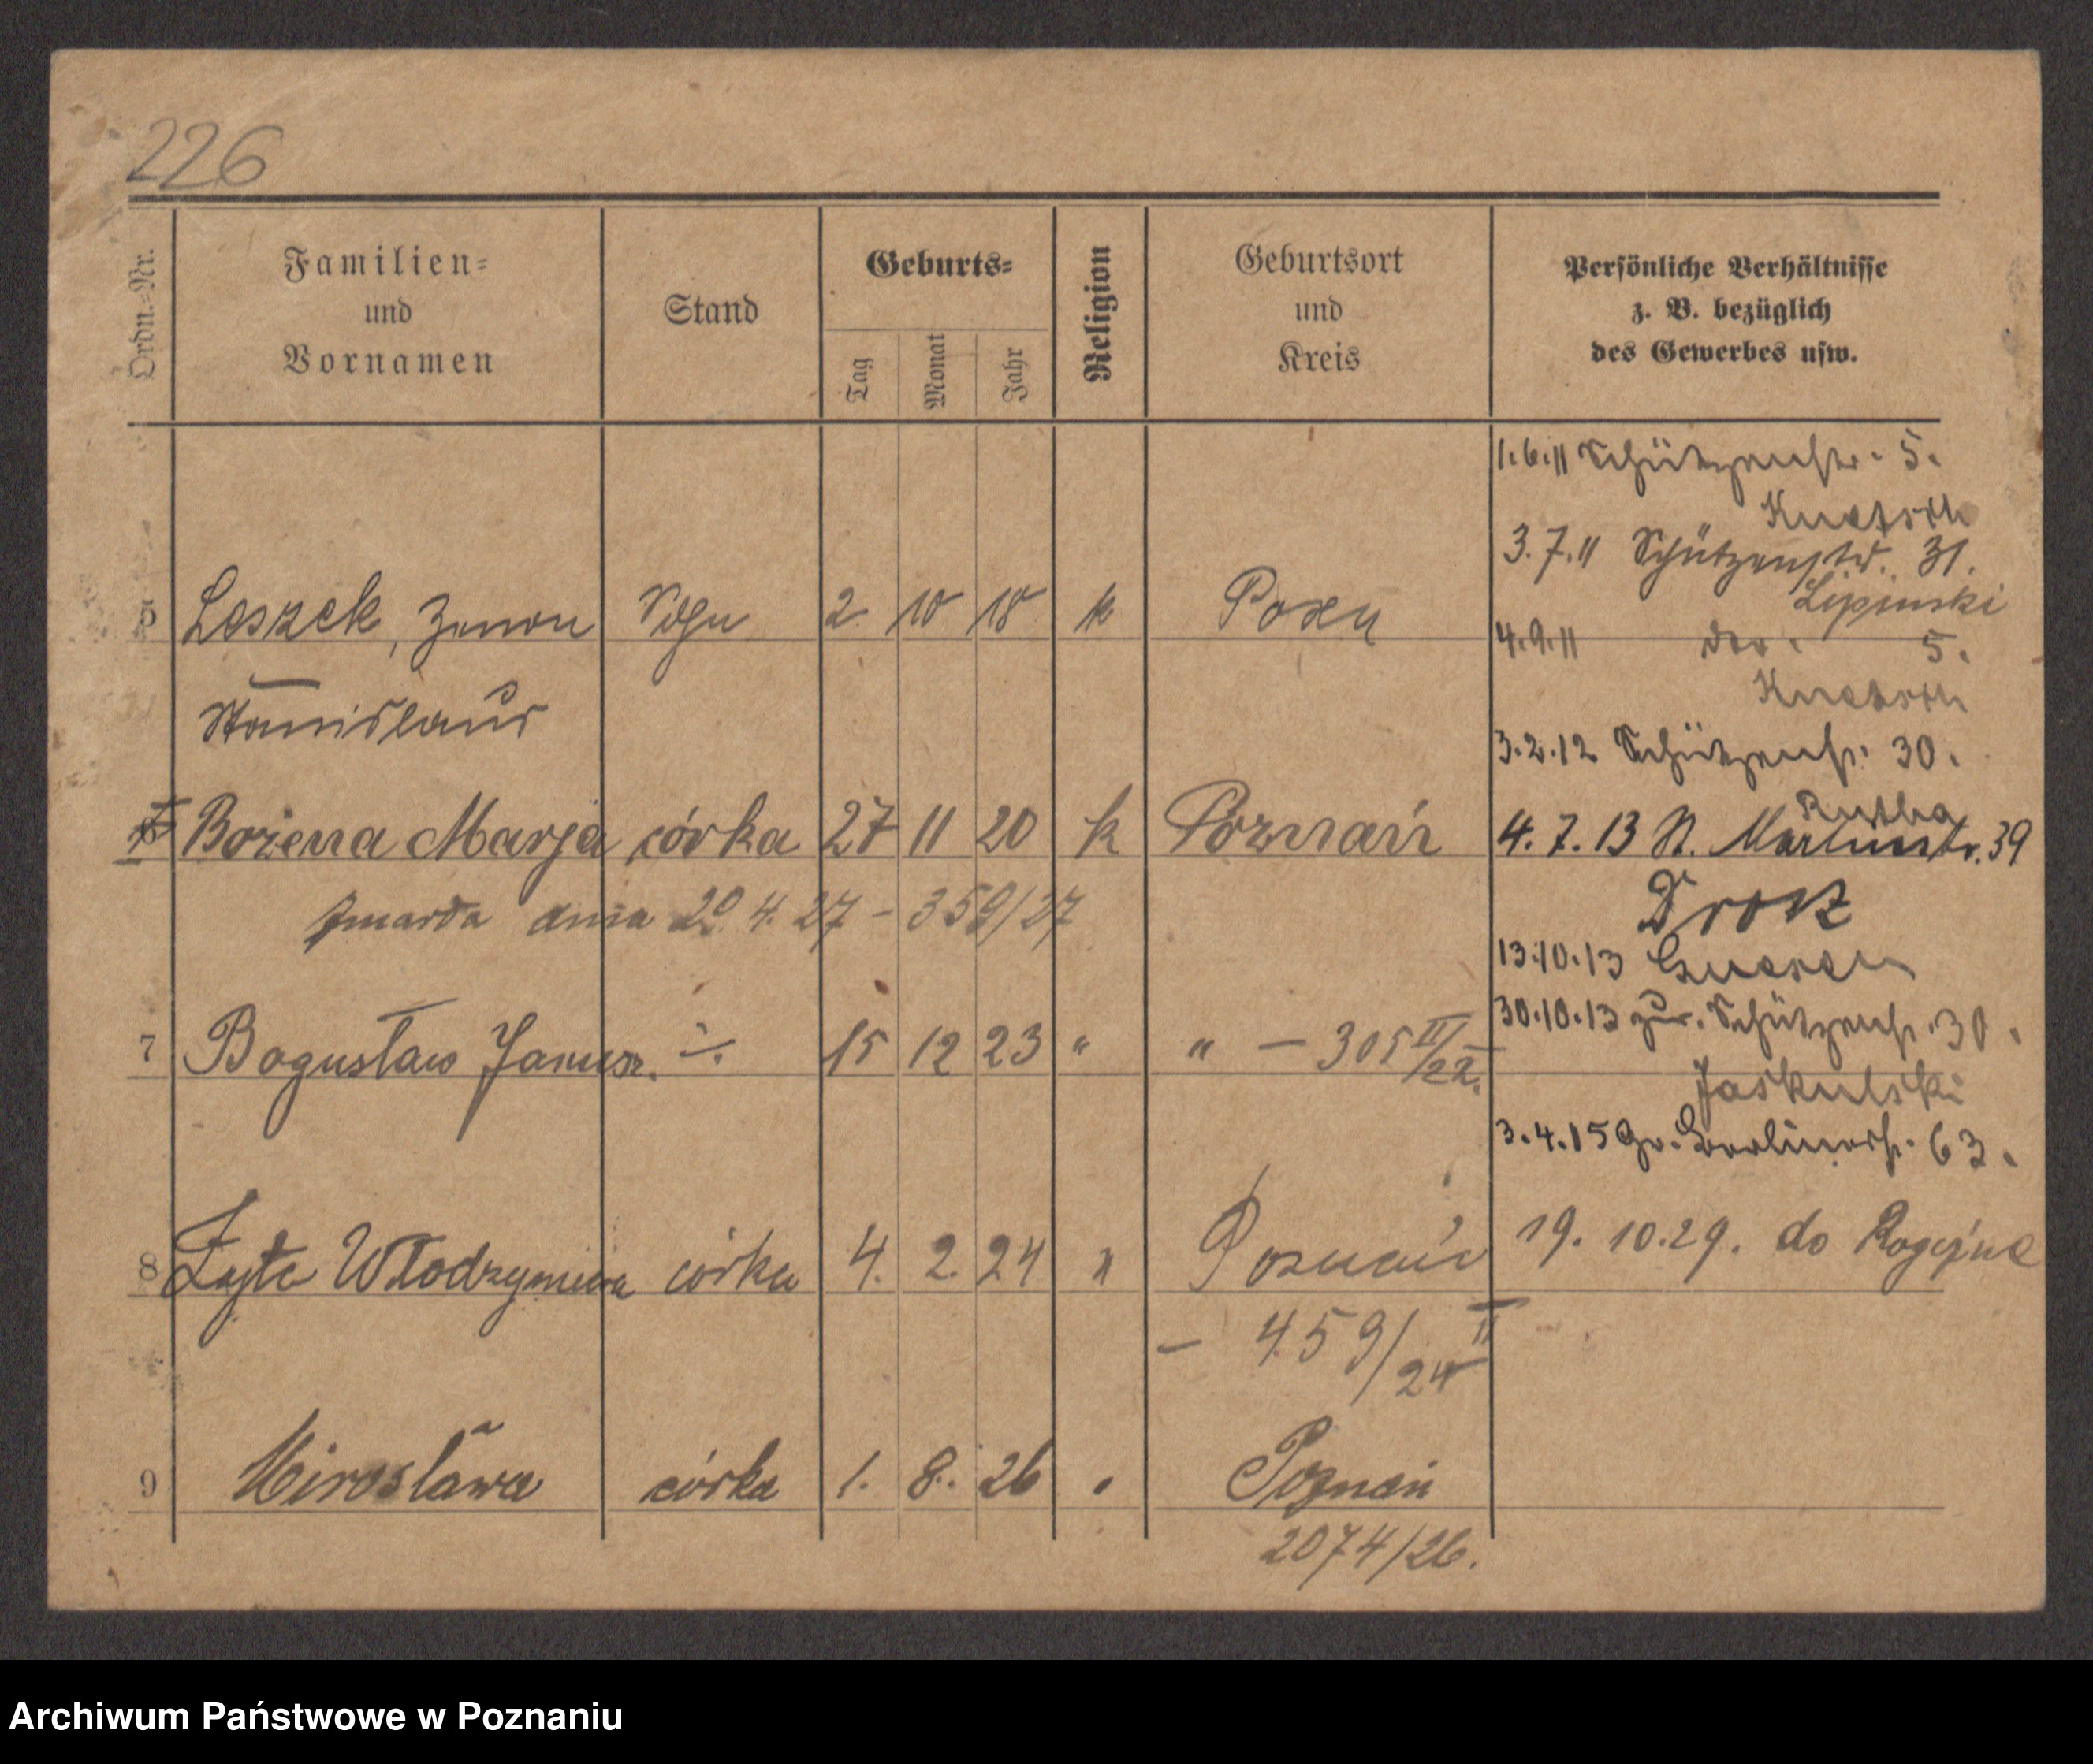 226
Ordn.-Nr.
Familien-
und
Vornamen
Stand
Geburts-
Tag
Monat
Jahr
Religion
Geburtsort
und
Kreis
Persönliche Verhältnisse
z. B. bezüglich
des Gewerbes usw.
1.6.11 Schützenstr. 5.
3.7.11 Schützenstr. 31.
Lipinski
5 Leszek, Zenon Sohn 2 10 18 k Posen
4.9.11 5.
Stanislaus
3.2.12 Schützenstr. 30.
6 Bożena Marja córka 27 11 20 k Poznań
4.7.13 St. Martinstr. 39
zmarła dnia 20 4. 27 - 359/27
Drosz
13.10.13 Gnesen
30.10.13 zur. Schützenstr. 30.
7 Bogusław Janusz. 15 12 23 " " - 305 II/22.
Jaskulski
3.4.15 Gr. Berlinerstr. 63.
8 Zyta Włodzymira córka 4. 2. 24 " Poznań
19. 10. 29. do Rogoźna
- 459/24 II
9 Mirosława córka 1. 8. 26 " Poznań
2074/26.
Archiwum Państwowe w Poznaniu